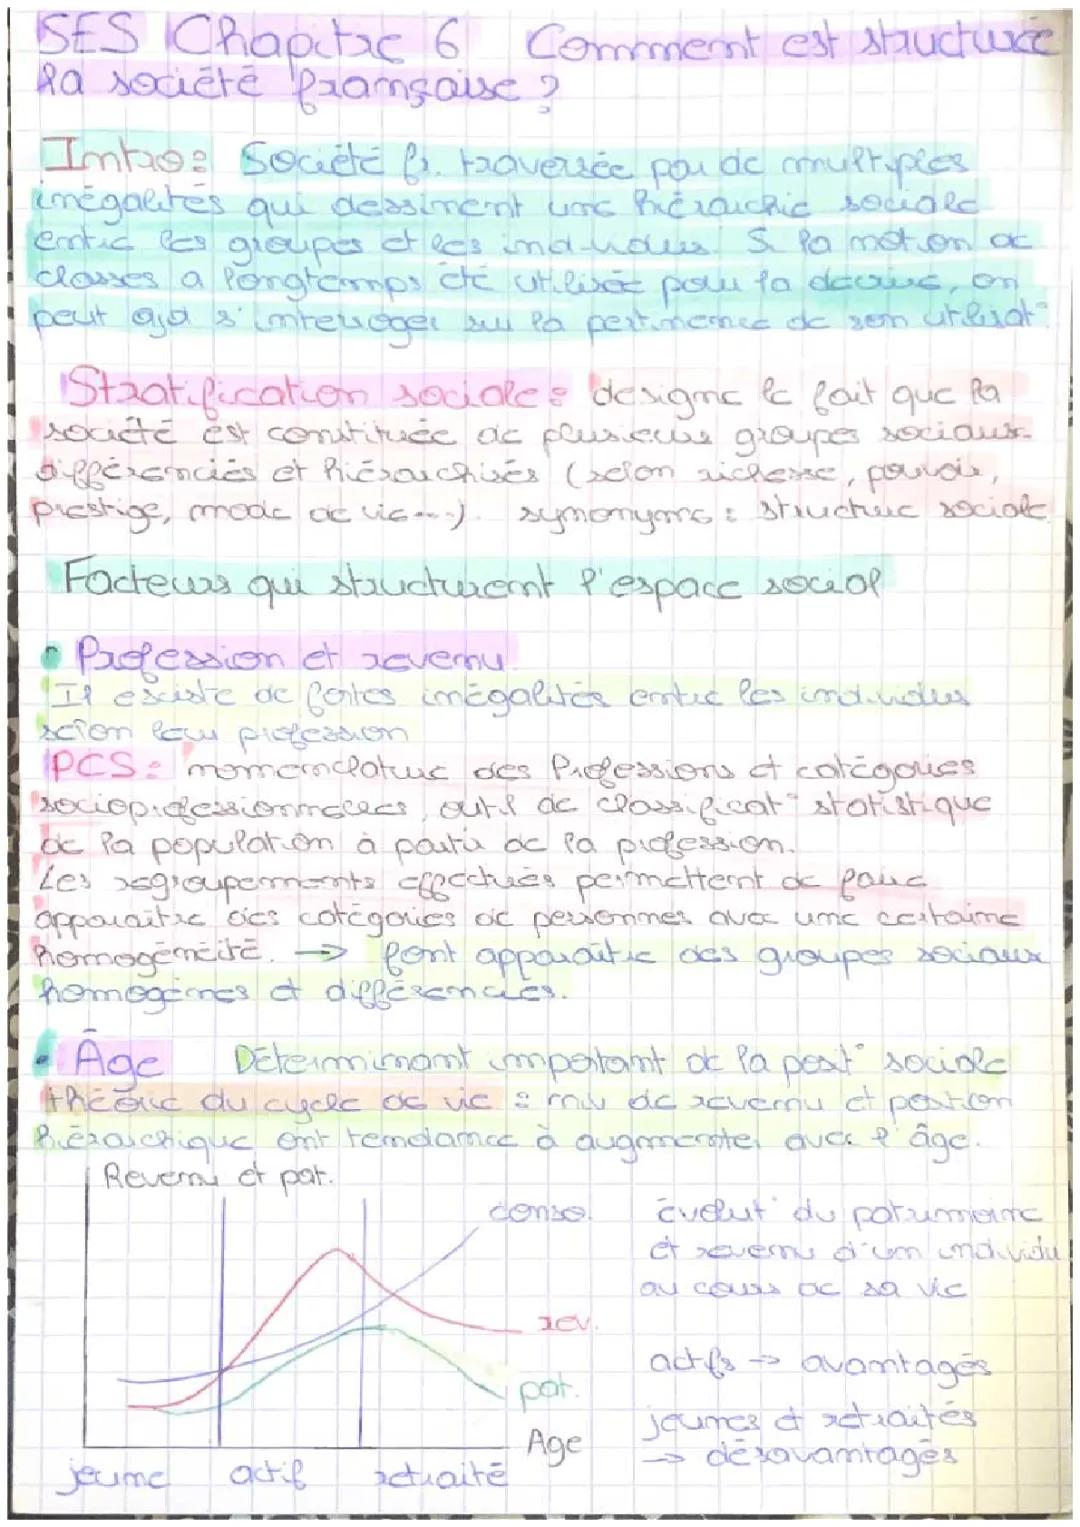 SES Chapitre 6 Comment est structurée
la société française ?
Intro: Société fr. traversée par de multiples
inégalités qui dessinent une hiérarchie sociale
entre les groupes et les individus. Si la notion de
classes a longtemps été utilisée pour la décrire, on
peut ajd s'interroger sur la pertinence de son utilisat°
Stratification sociale : designe le fait que la
société est constituée de plusieurs groupes sociaux
différenciés et hiérarchisés (selon richesse, pouvoir,
prestige, mode de vie...). synonyme : structure sociale
Facteurs qui structurent l'espace social
• Profession et revenu
Il existe de fortes inégalités entre les individus
selon leur profession
PCS : nomenclature des Professions et catégories
socioprofessionnelles, outil de classificat° statistique
de la population à partir de la profession.
Les regroupements effectués permettent de faire
apparaitre des catégories de personnes avec une certaine
homogénéité. → font apparaître des groupes sociaux
homogènes et différenciés.
• Âge Déterminant important de la posit° sociale
théorie du cycle de vie : niv de revenu et position
hiérarchique ont tendance à augmenter avec l'âge.
Revenu et pat.
conso.
rev.
pat.
Age
jeune actif retraité
évolut° du patrimoine
et revenu d'un individu
au cours de sa vie
actifs → avantagés
jeunes et retraités
→ désavantagés